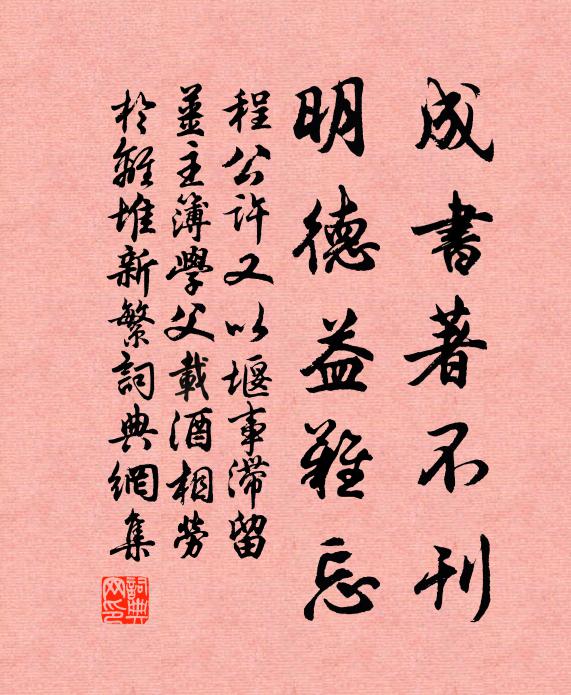 成書著不刊
明德益難忘
程公許又以堰事滯留
姜主簿學父載酒相勞
於離堆新繁詞典網集
詞典網印